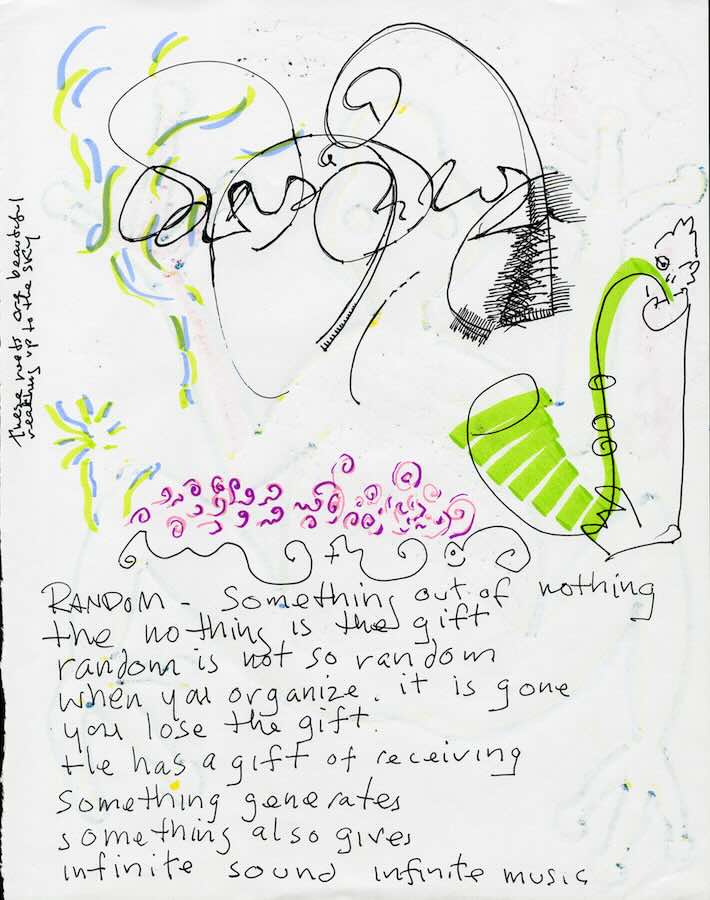 these roots are beautiful
reaching up to the sky
RANDOM - Something out of nothing
the nothing is the gift
random is not so random
when you organize. it is gone
you lose the gift.
He has a gift of receiving
Something generates
something also gives
infinite sound infinite music